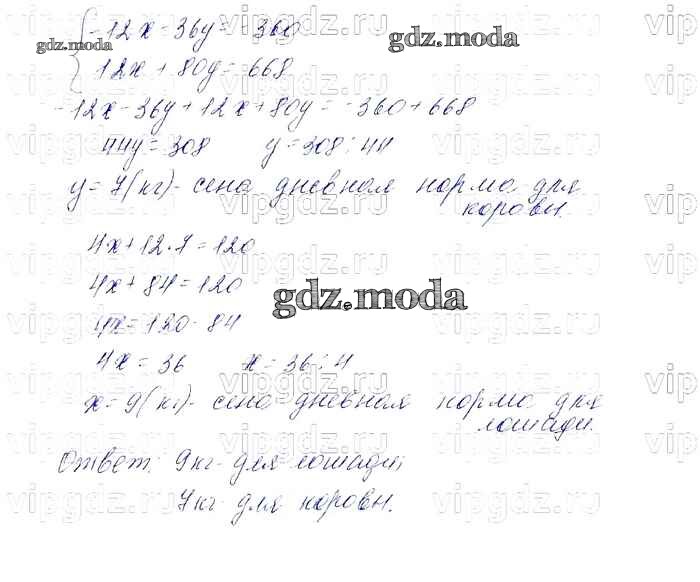 { -12x - 36y = -360
12x + 80y = 668
-12x - 36y + 12x + 80y = -360 + 668
44y = 308 y = 308 : 44
y = 7 (кг) - сена дневная норма для
коровы.
4x + 12·7 = 120
4x + 84 = 120
4x = 120 - 84
4x = 36 x = 36 : 4
x = 9 (кг) - сена дневная норма для
лошади.
Ответ: 9 кг - для лошади;
7 кг для коровы.
gdz.moda
gdz.moda
gdz.moda
vipgdz.ru